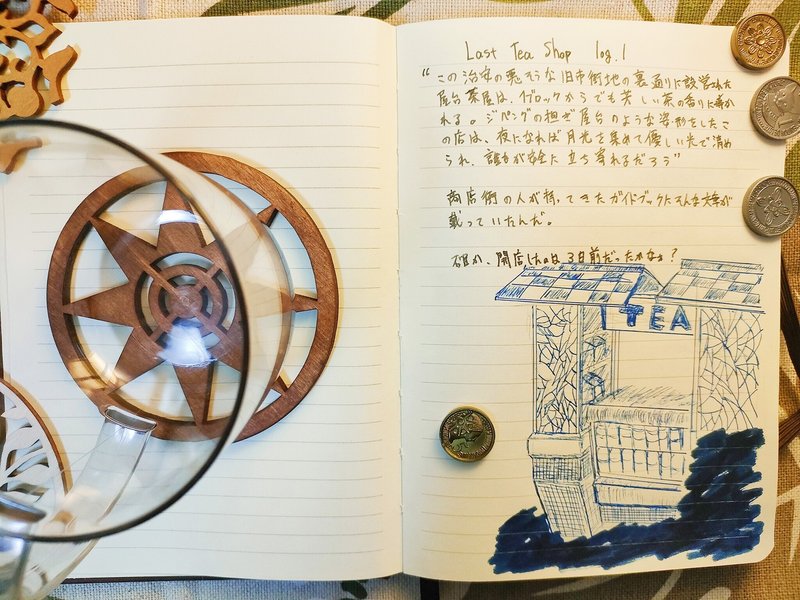 Last Tea Shop log.1
“この治安の悪そうな旧市街地の裏通りに設営された
屋台茶屋は、1ブロックからでも芳しい茶の香りに導か
れる。ジパングの担ぎ屋台のような姿形をしたこ
の店は、夜になれば月光を集めて優しい光で清め
られ、誰もが安全に立ち寄れるだろう”
商店街の人が持ってきたガイドブックにそんな文章が
載っていたんだ。
確か、開店したのは3日前だったかなぁ？
TEA